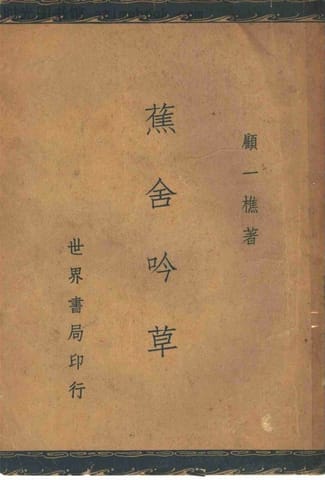 顧一樵著
蕉舍吟草
世界書局印行